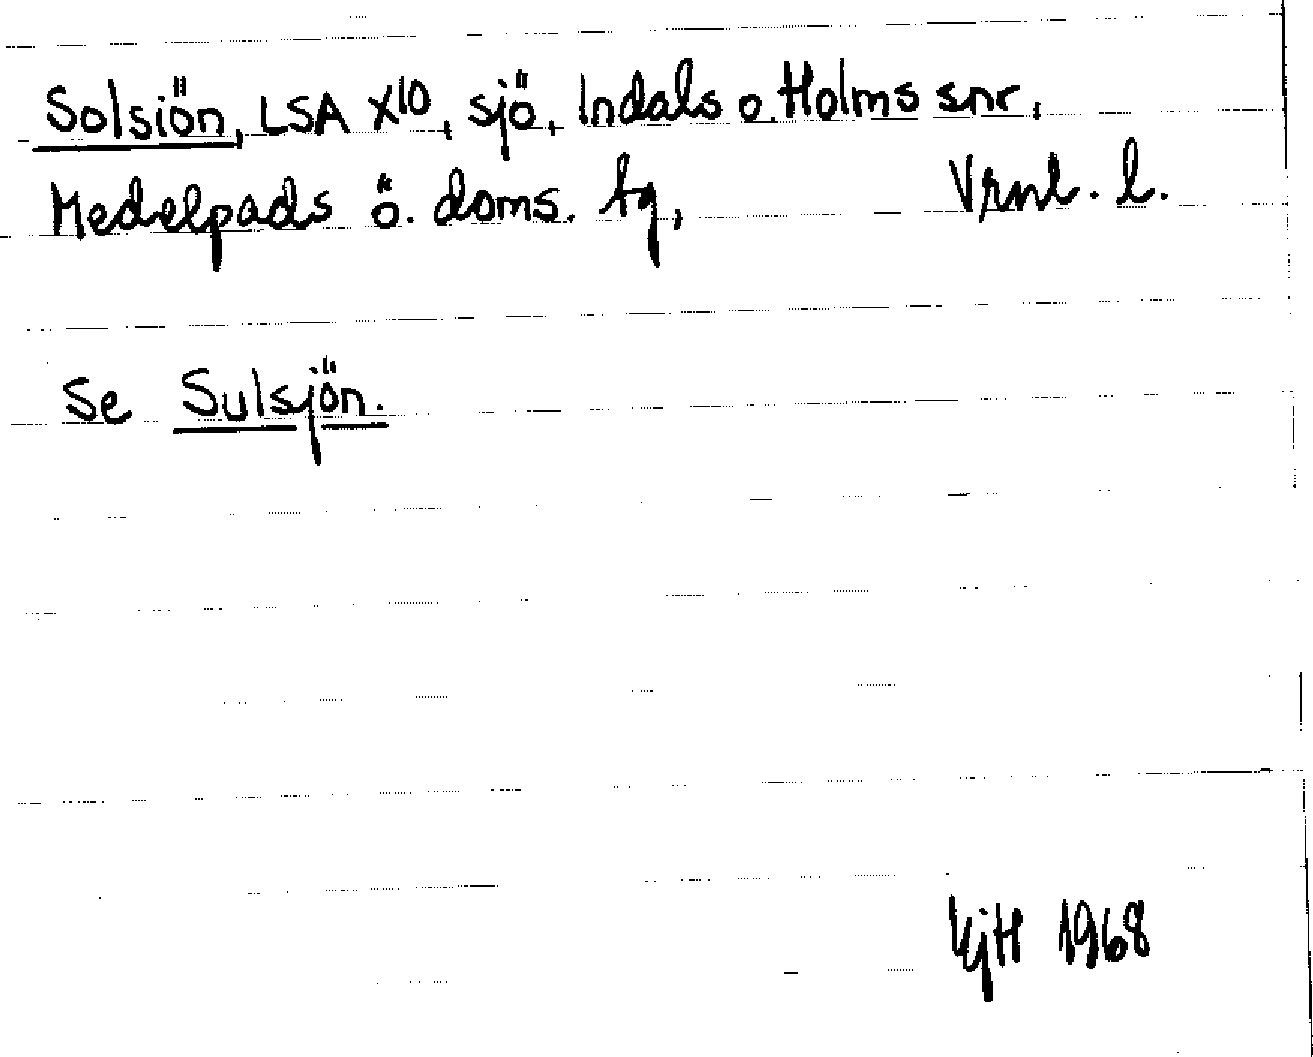 Solsiön, LSA X10, sjö, Indals o. Holms snr,
Medelpads ö. doms. tg, Vrnl. l.
Se Sulsjön.
KjH 1968